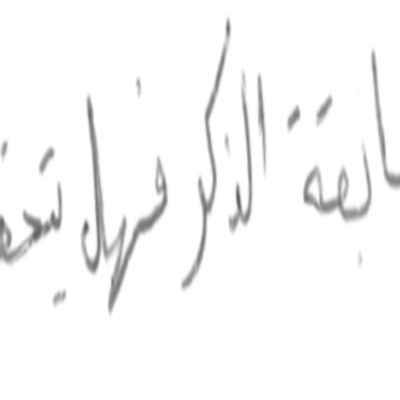 ابقة الذكر فهل يتحقـ